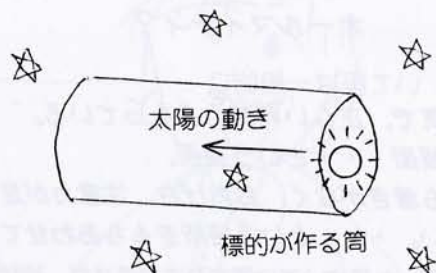 太陽の動き
標的が作る筒